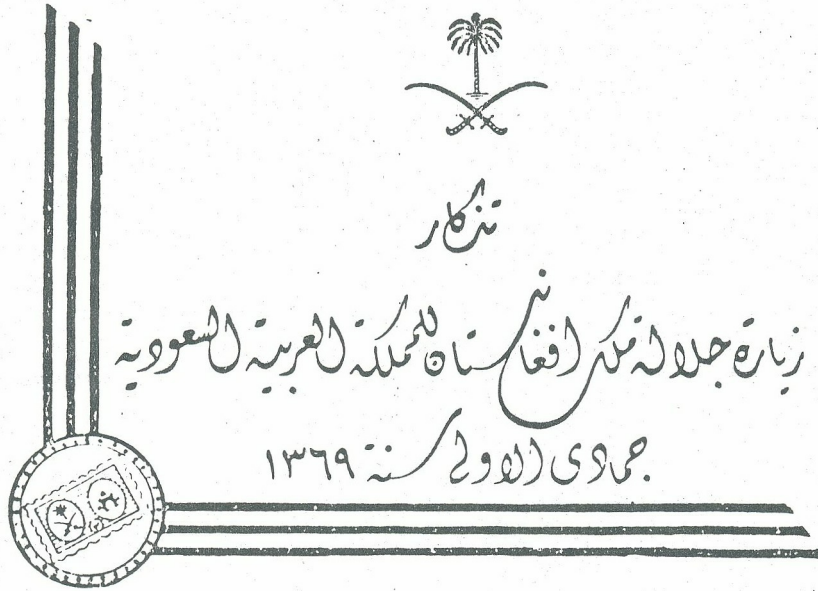 تذكار
زيارة جلالة ملك افغانستان للمملكة العربية السعودية
جمادى الاولى سنة ١٣٦٩